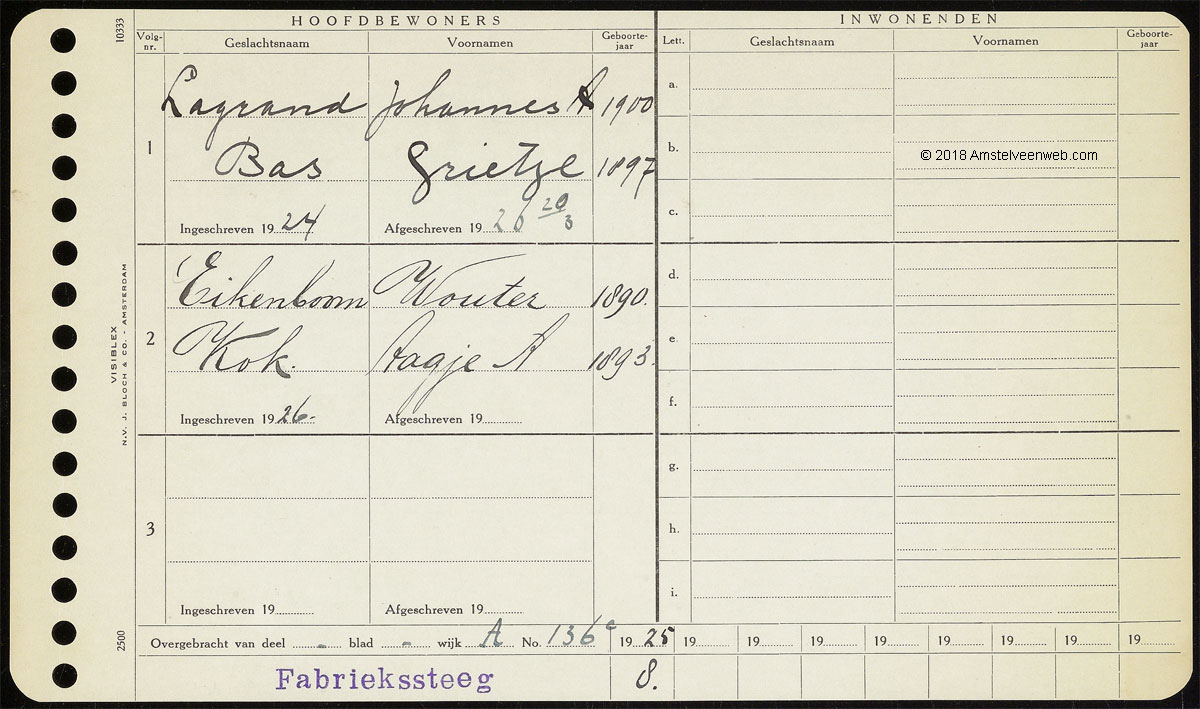 HOOFDBEWONERS
INWONENDEN
Volg-nr. Geslachtsnaam Voornamen Geboorte-jaar Lett. Geslachtsnaam Voornamen Geboorte-jaar
1
Lagrand Johannes A 1900
Bas Grietze 1897
Ingeschreven 1924 Afgeschreven 1926 20/3
2
Eikenboom Wouter 1890.
Kok. Aagje A 1893.
Ingeschreven 1926. Afgeschreven 19
3
Ingeschreven 19 Afgeschreven 19
a.
b.
© 2018 Amstelveenweb.com
c.
d.
e.
f.
g.
h.
i.
Overgebracht van deel - blad - wijk A No. 136c 1925 19 19 19 19 19 19 19 19
Fabriekssteeg 8.
10333
VISIBLEX
N.V. J. BLOCH & CO. - AMSTERDAM
2500